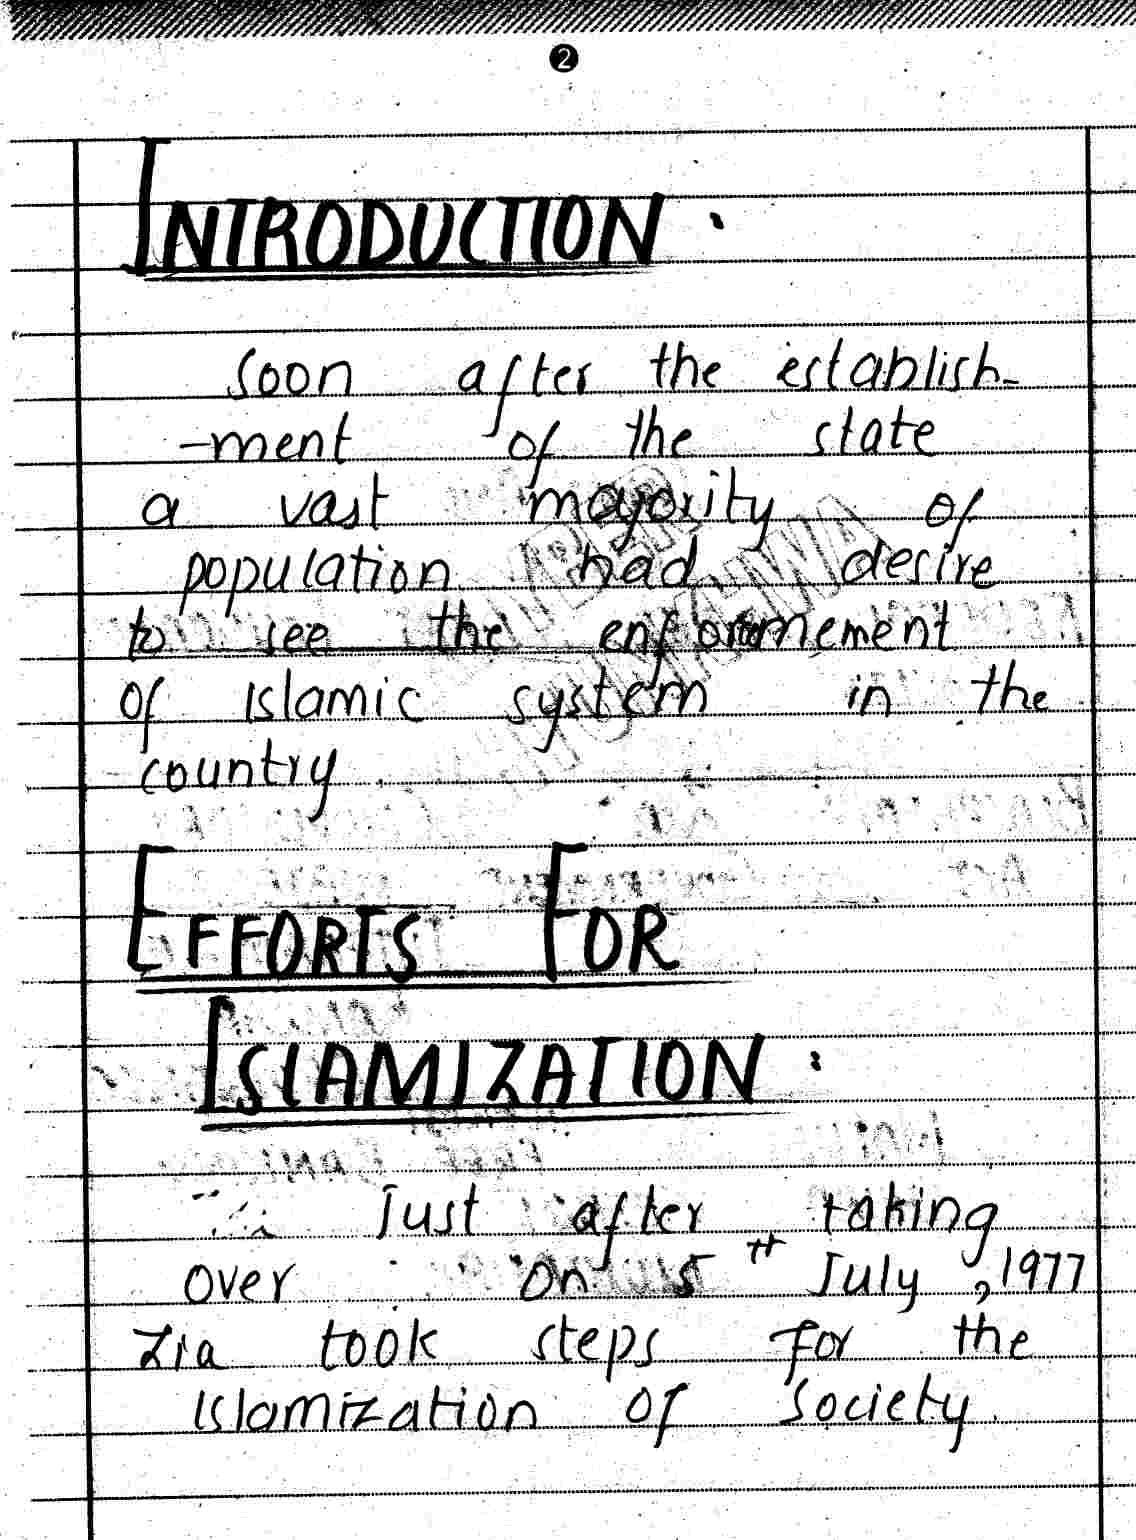 2
INTRODUCTION .
Soon after the establish-
-ment of the state
a vast majority of
population had desire
to see the
of Islamic system in the
country
EFFORTS FOR
ISLAMIZATION :
Just after taking
over on 5th July, 1977
Zia took steps for the
Islamization of society.